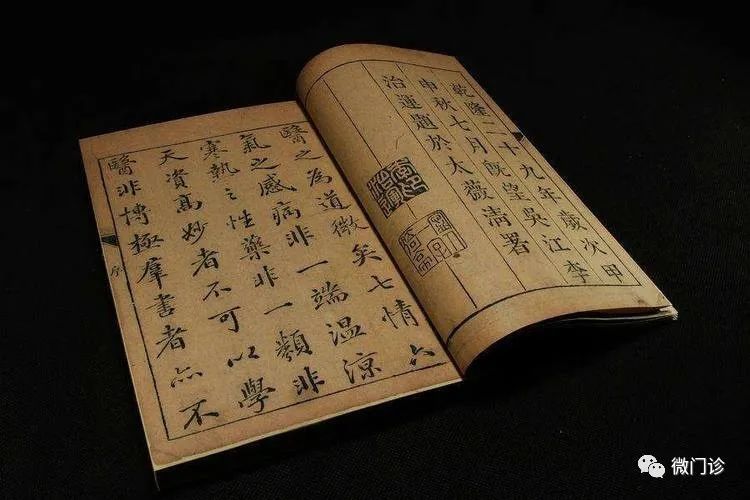 乾隆二十九年歲次甲
申秋七月既望吳江李
治運題於太薇清署
醫之為道微矣七情六
氣之感病非一端溫涼
寒熱之性藥非一類非
天資髙妙者不可以學
醫非博極羣書者亦不
序
微门诊